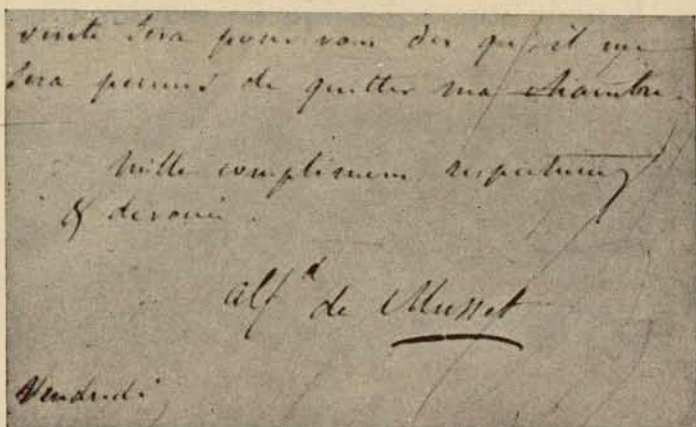 visite sera pour vous dès qu'il me
sera permis de quitter ma chambre.
Mille compliments respectueux
& dévoués.
Alf^d de Musset
Vendredi